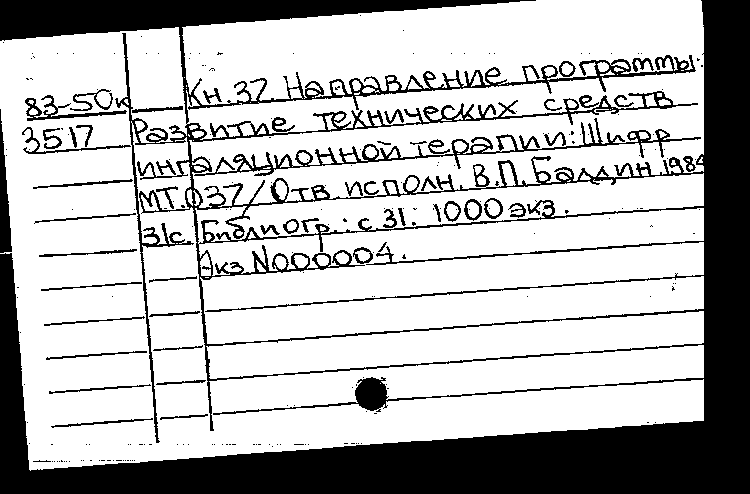 83-50к Кн.37 Направление программы:
3517 Развитие технических средств
ингаляционной терапии: Шифр
МТ.037/Отв. исполн. В.П. Балдин. 1984
31с. Библиогр.: с 31. 1000 экз.
Экз N000004.